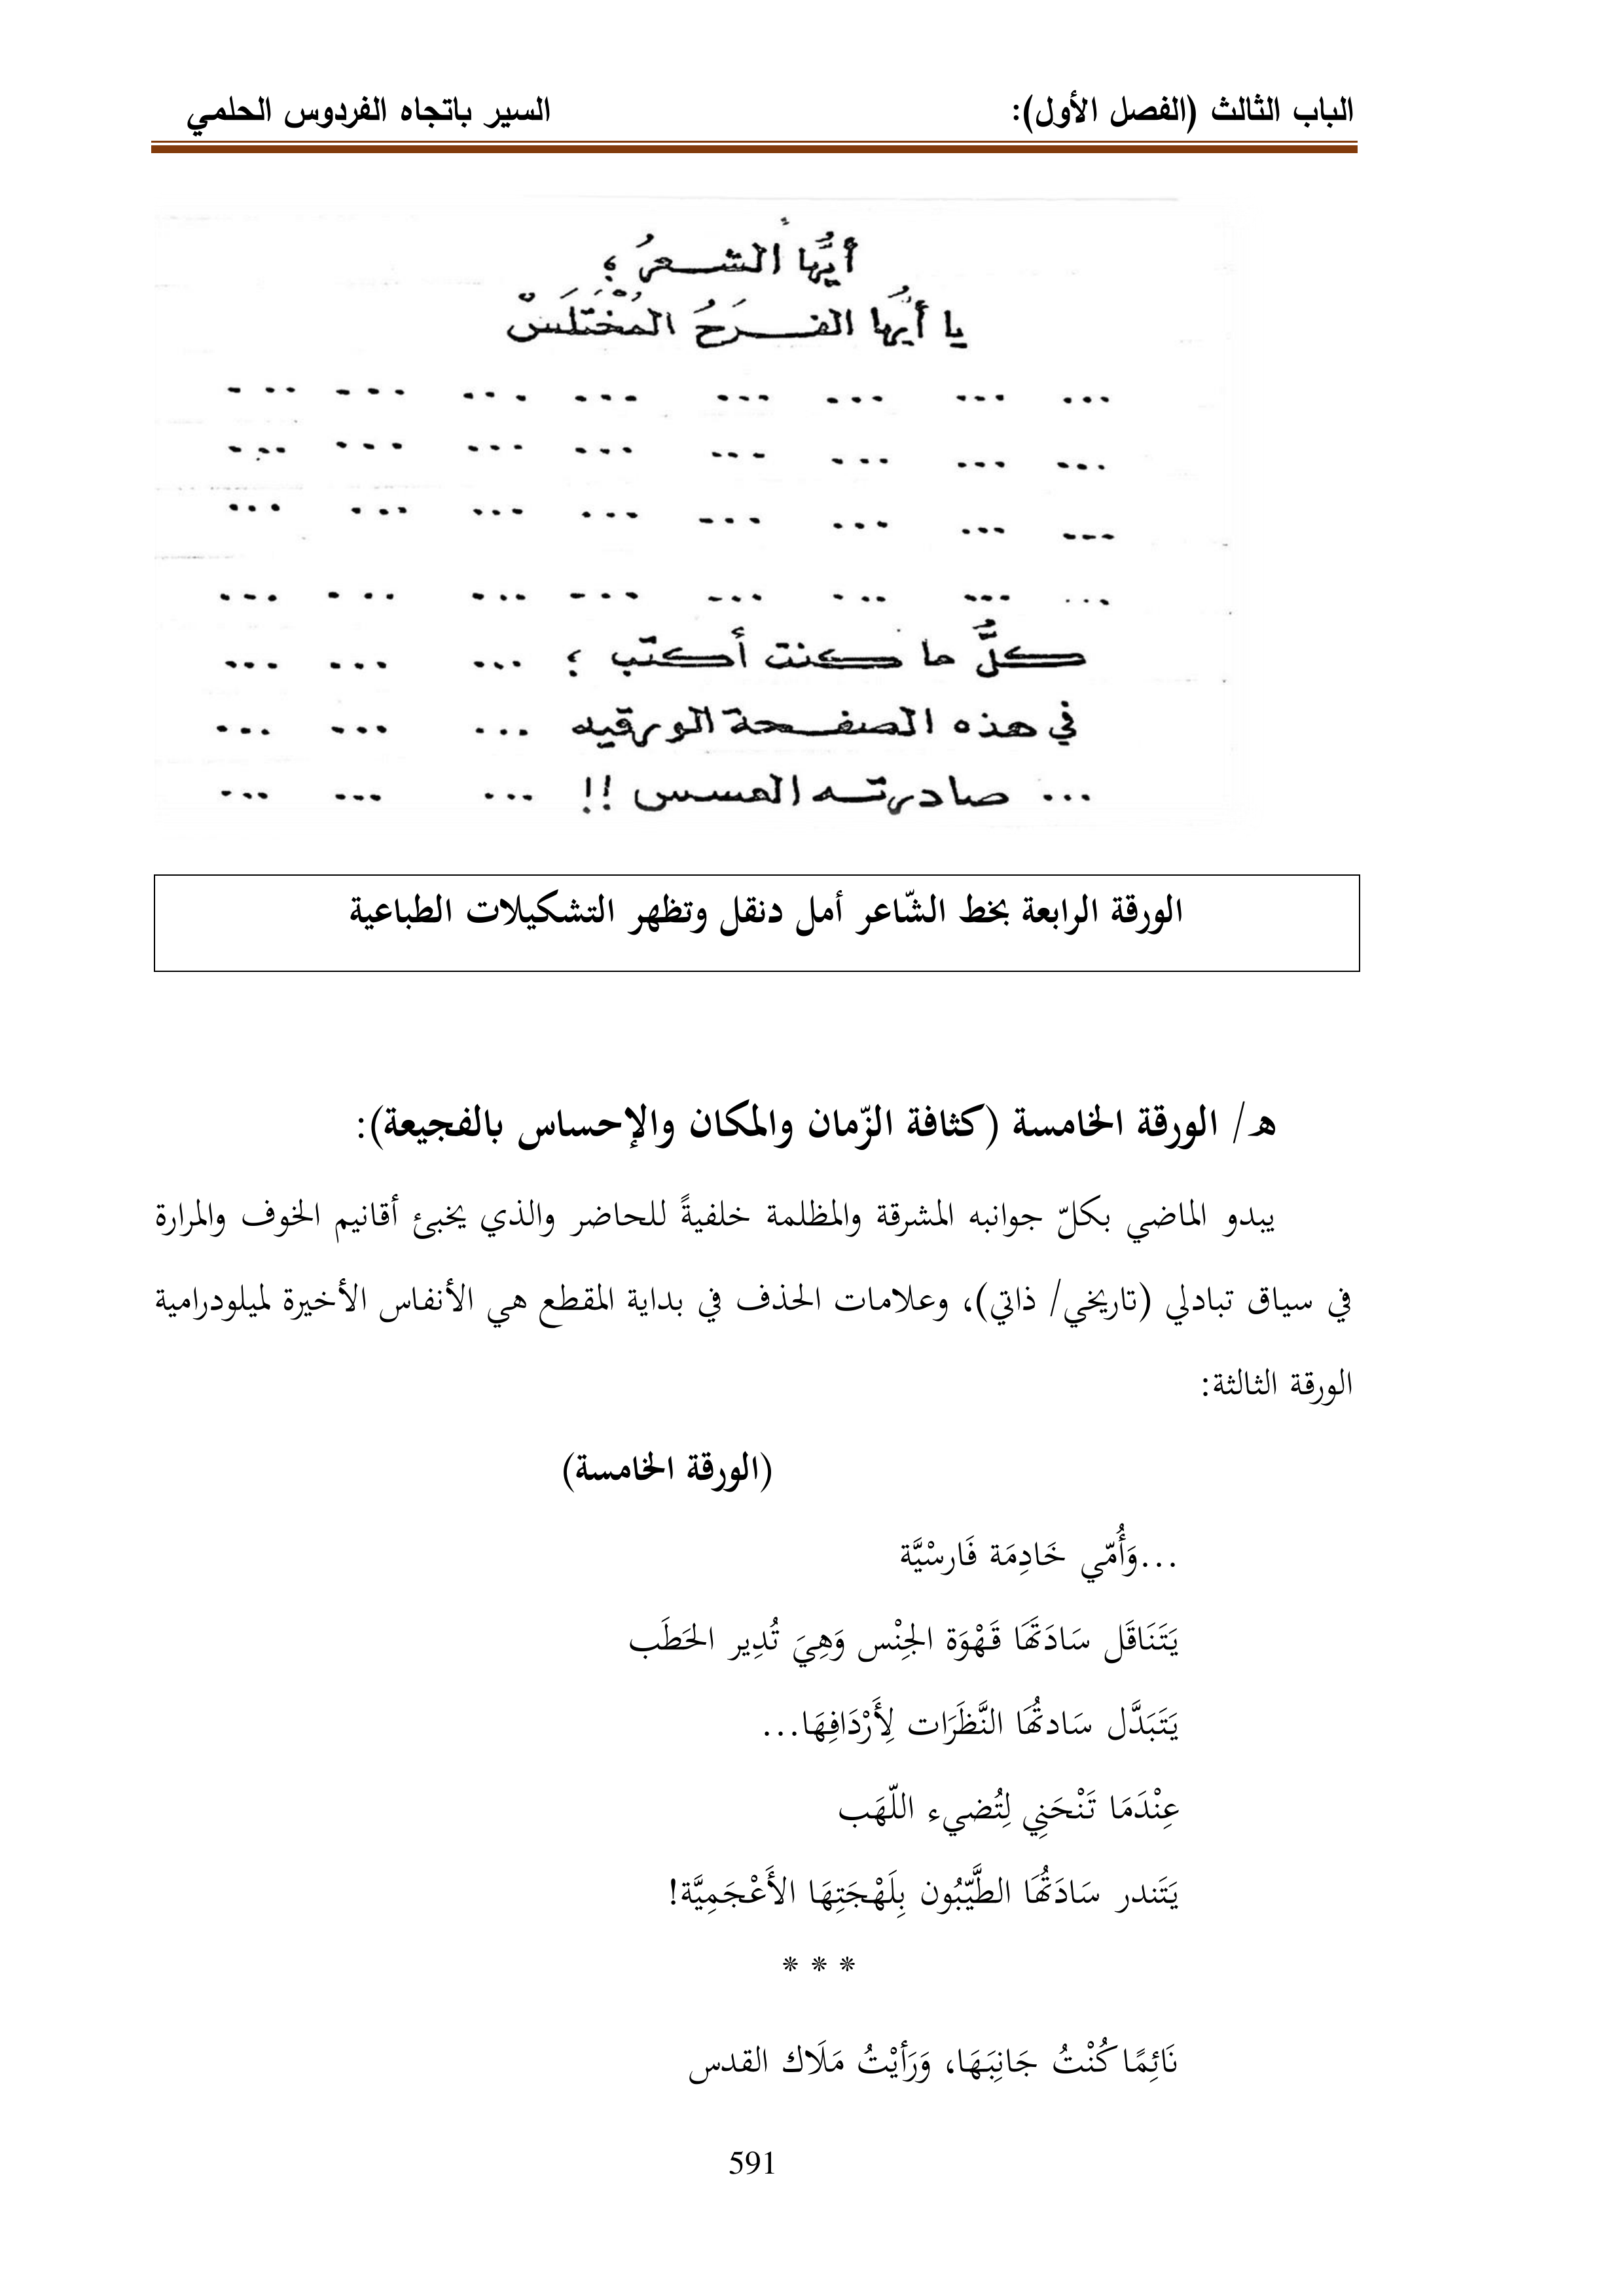 الباب الثالث (الفصل الأول): السير باتجاه الفردوس الحلمي
أيُّها الشعرُ ؛
يا أيُها الفَرَحُ المُخْتَلَسْ
... ... ... ... ... ... ... ...
... ... ... ... ... ... ... ...
... ... ... ... ... ... ... ...
... ... ... ... ... ... ... ...
كلُّ ما كنت أكتب ؛ ... ... ...
في هذه الصفحة الورقيه ... ... ...
... صادرته العسس !! ... ... ...
الورقة الرابعة بخط الشّاعر أمل دنقل وتظهر التشكيلات الطباعية
هـ/ الورقة الخامسة (كثافة الزّمان والمكان والإحساس بالفجيعة):
يبدو الماضي بكلّ جوانبه المشرقة والمظلمة خلفيةً للحاضر والذي يخبئ أقانيم الخوف والمرارة
في سياق تبادلي (تاريخي/ ذاتي)، وعلامات الحذف في بداية المقطع هي الأنفاس الأخيرة لميلودرامية
الورقة الثالثة:
(الورقة الخامسة)
...وَأُمّي خَادِمَة فَارسْيَّة
يَتَنَاقَل سَادَتَهَا قَهْوَة الجِنْس وَهِيَ تُدِير الحَطَب
يَتَبَدَّل سَادتُهَا النَّظَرَات لِأَرْدَافِهَا...
عِنْدَمَا تَنْحَنِي لِتُضيء اللّهَب
يَتَندر سَادَتُهَا الطَّيّبُون بِلَهْجَتِهَا الأَعْجَمِيَّة!
* * *
نَائِمًا كُنْتُ جَانِبَهَا، وَرَأيْتُ مَلَاك القدس
591